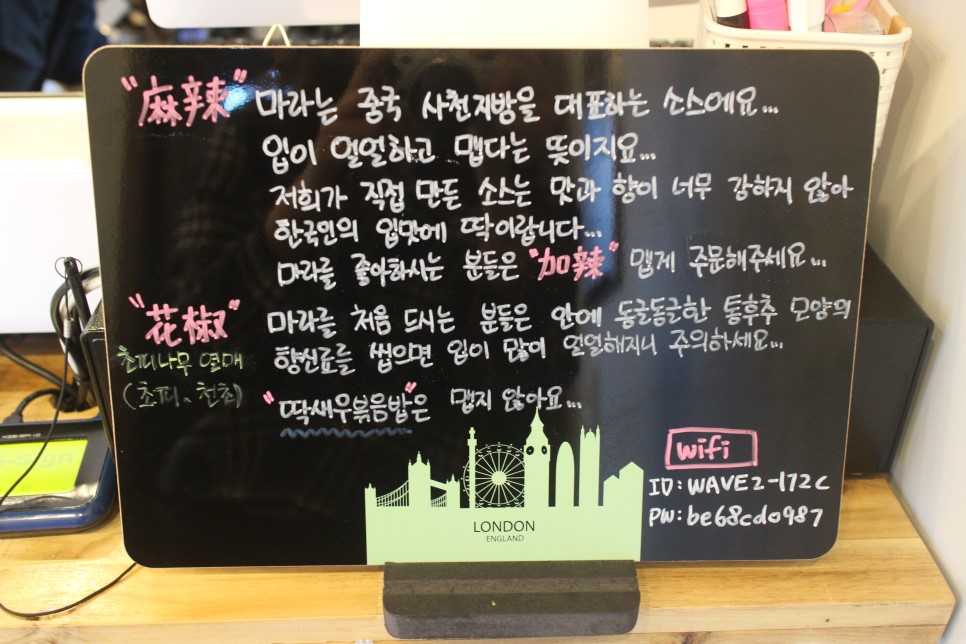 "麻辣" 마라는 중국 사천지방을 대표하는 소스에요...
입이 얼얼하고 맵다는 뜻이지요...
저희가 직접 만든 소스는 맛과 향이 너무 강하지 않아
한국인의 입맛에 딱이랍니다...
마라를 좋아하시는 분들은 "加辣" 맵게 주문해주세요...
"花椒" 마라를 처음 드시는 분들은 안에 동글동글한 통후추 모양의
향신료를 씹으면 입이 많이 얼얼해지니 주의하세요...
초피나무 열매
(초피、천초)
"딱새우볶음밥"은 맵지 않아요...
wifi
ID: WAVE2-172C
PW: be68cd0987
LONDON
ENGLAND